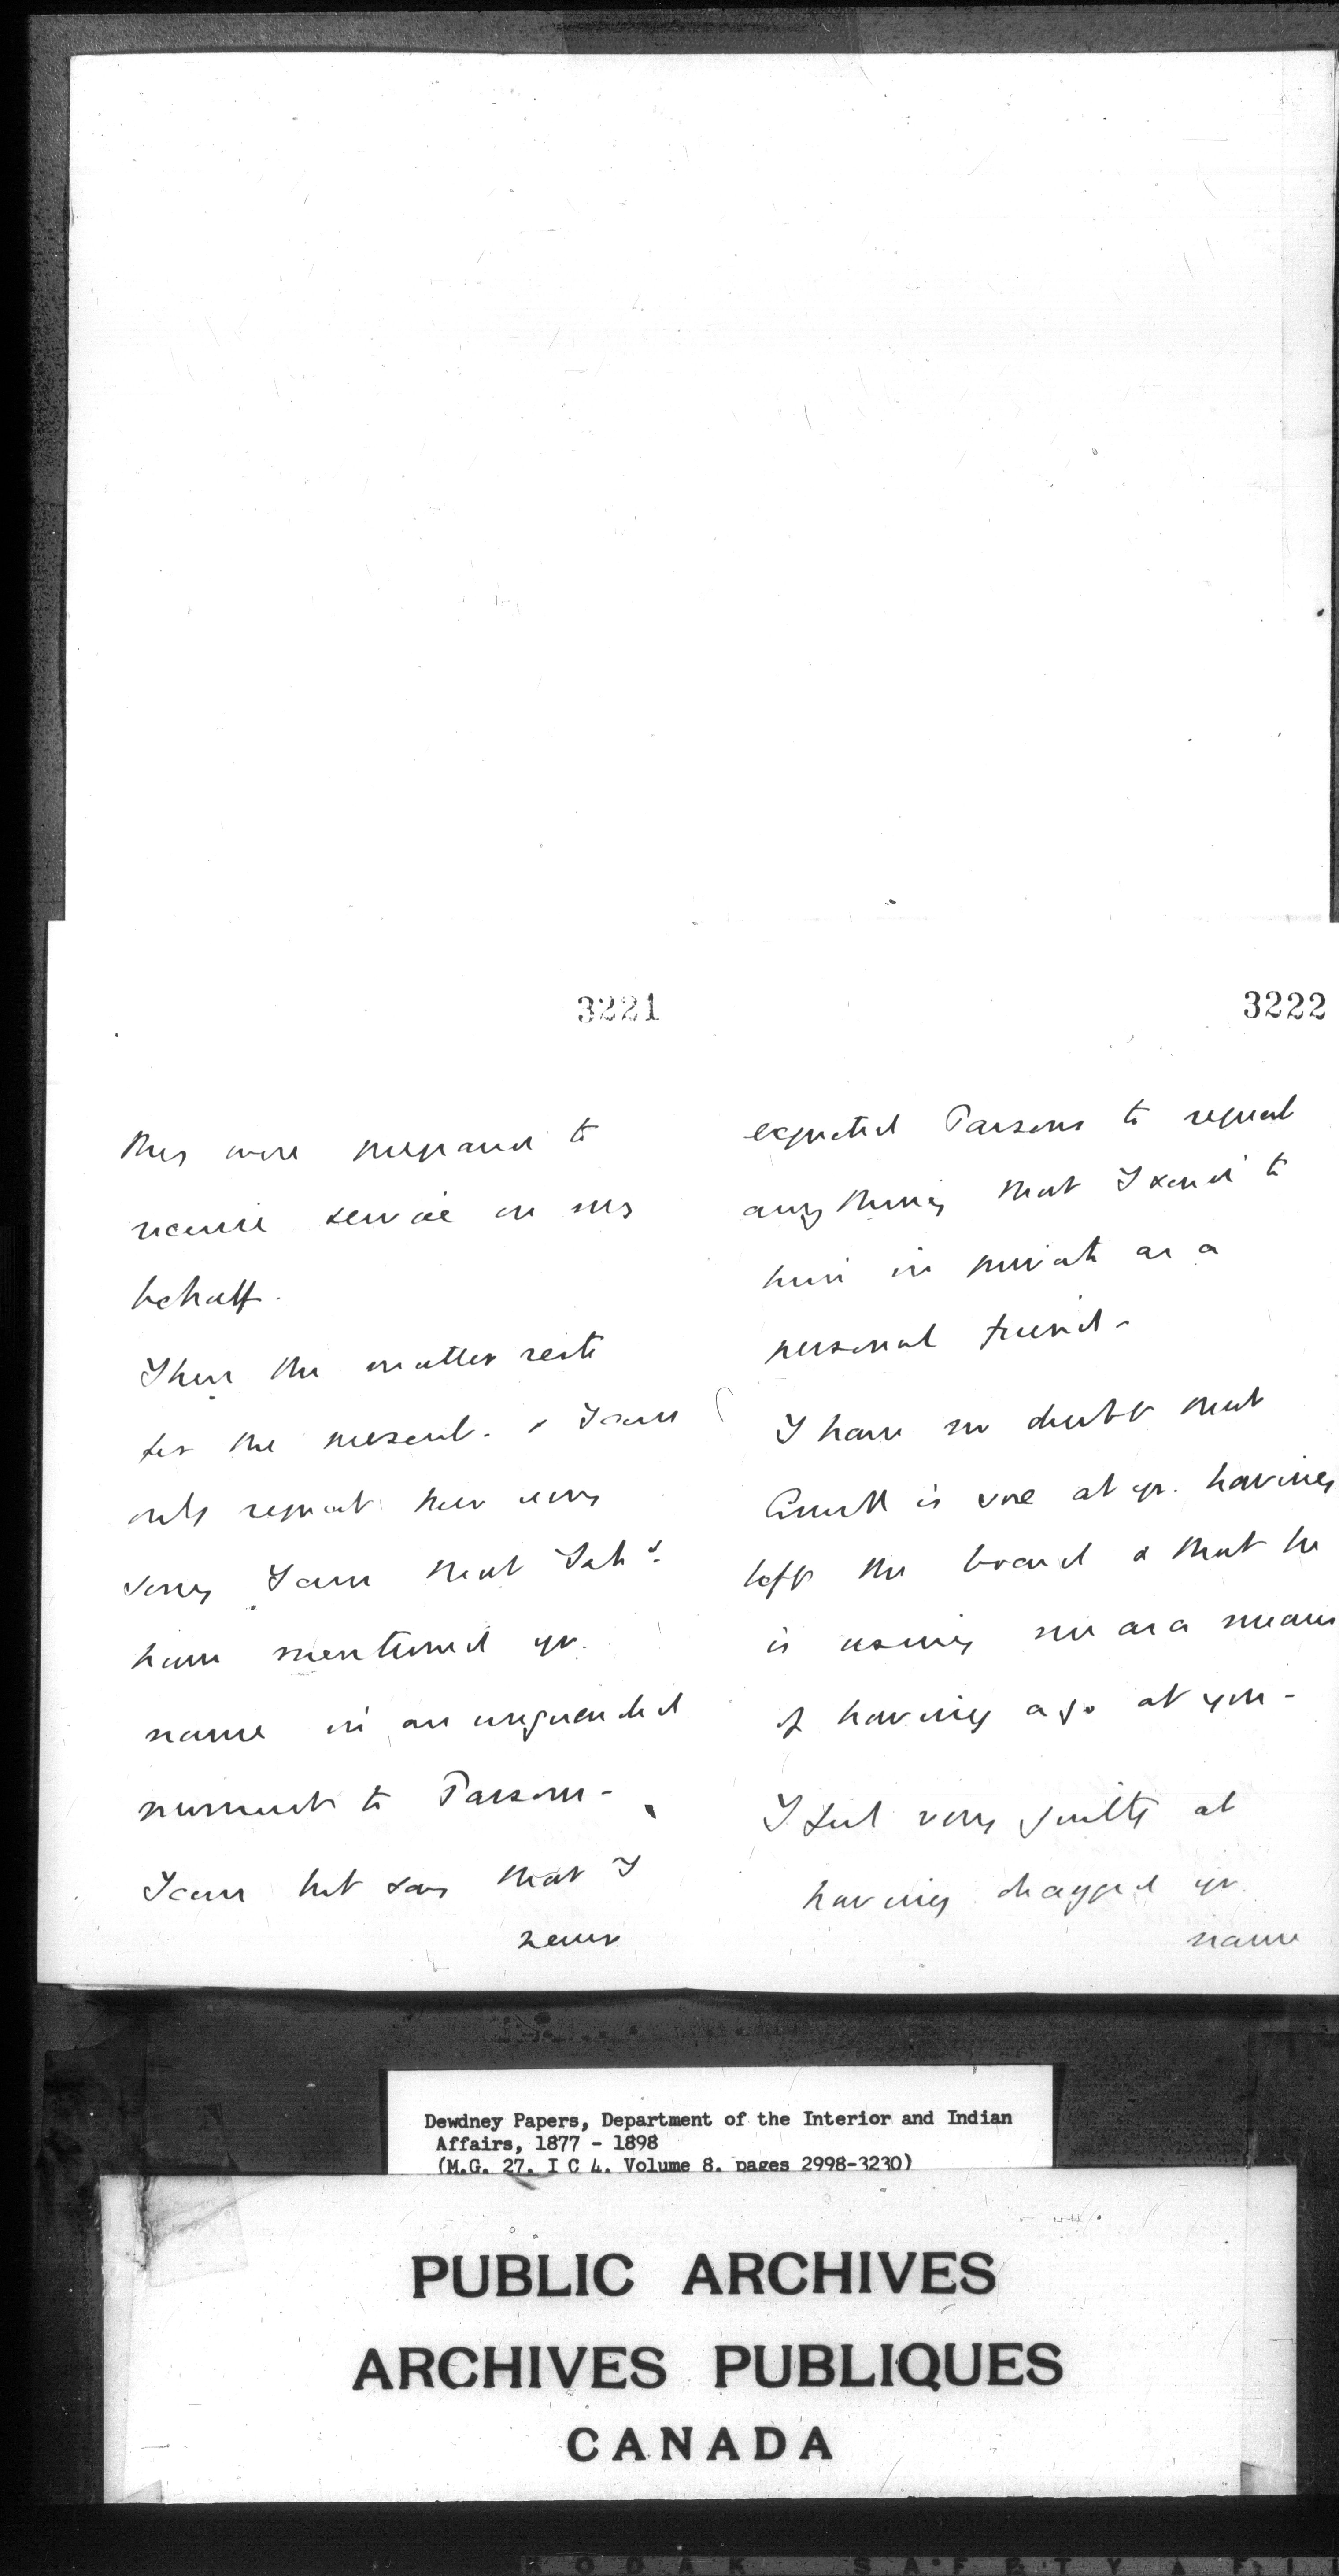 3221
they were prepared to
receive service on my
behalf.
There the matter rests
for the present. & I can
only repeat how very
sorry I am that I sh^d.
have mentioned yr.
name in an unguarded
moment to Parsons -
I can but say that I
never
3222
expected Parsons to repeat
anything that I said to
him in private as a
personal friend -
I have no doubt that
is sore at yr. having
left the board & that he
is using me as a means
of having a go at you -
I feel very guilty at
having dragged yr.
name
Dewdney Papers, Department of the Interior and Indian
Affairs, 1877 - 1898
(M.G. 27, I C 4, Volume 8, pages 2998-3230)
PUBLIC ARCHIVES
ARCHIVES PUBLIQUES
CANADA
KODAK SAFETY A FI